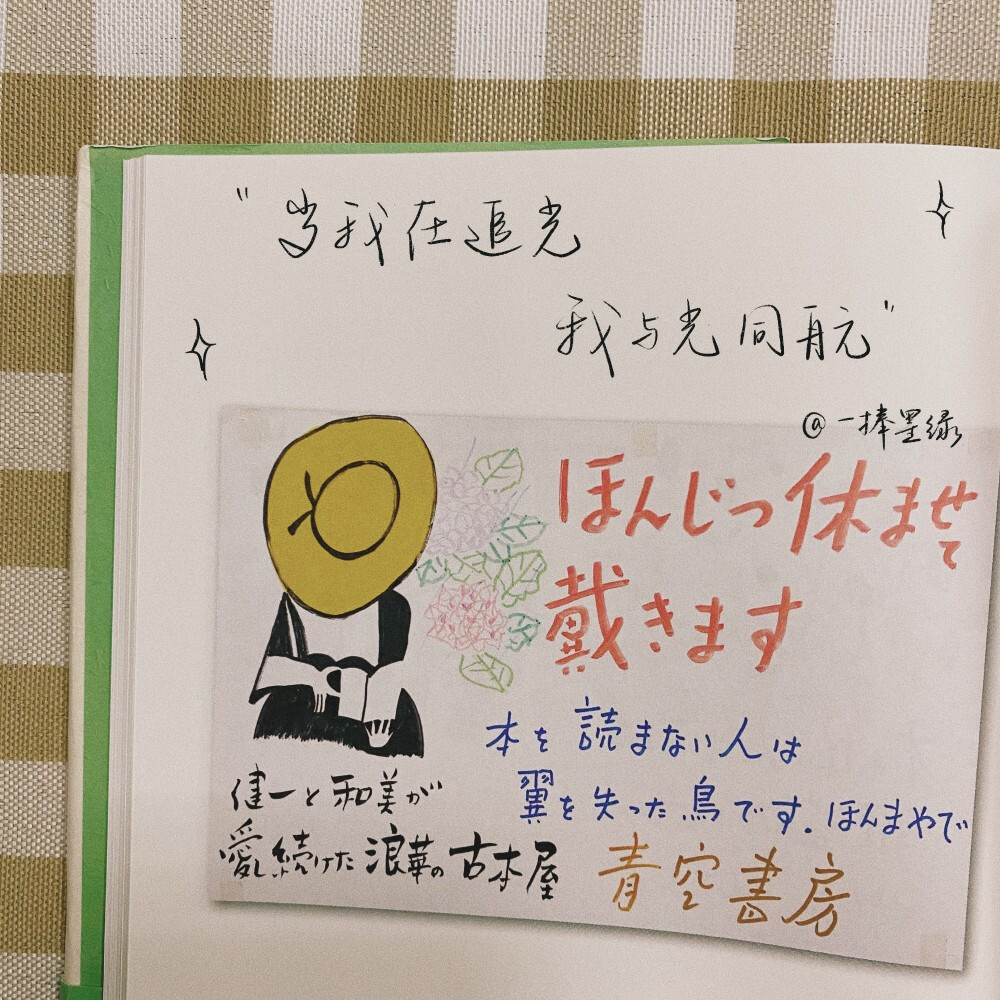 "当我在追光
我与光同航"
@一捧墨绿
ほんじつ休ませて
戴きます
本を読まない人は
翼を失った鳥です.ほんまやで
健一と和美が
愛し続けた浪華の古本屋
青空書房